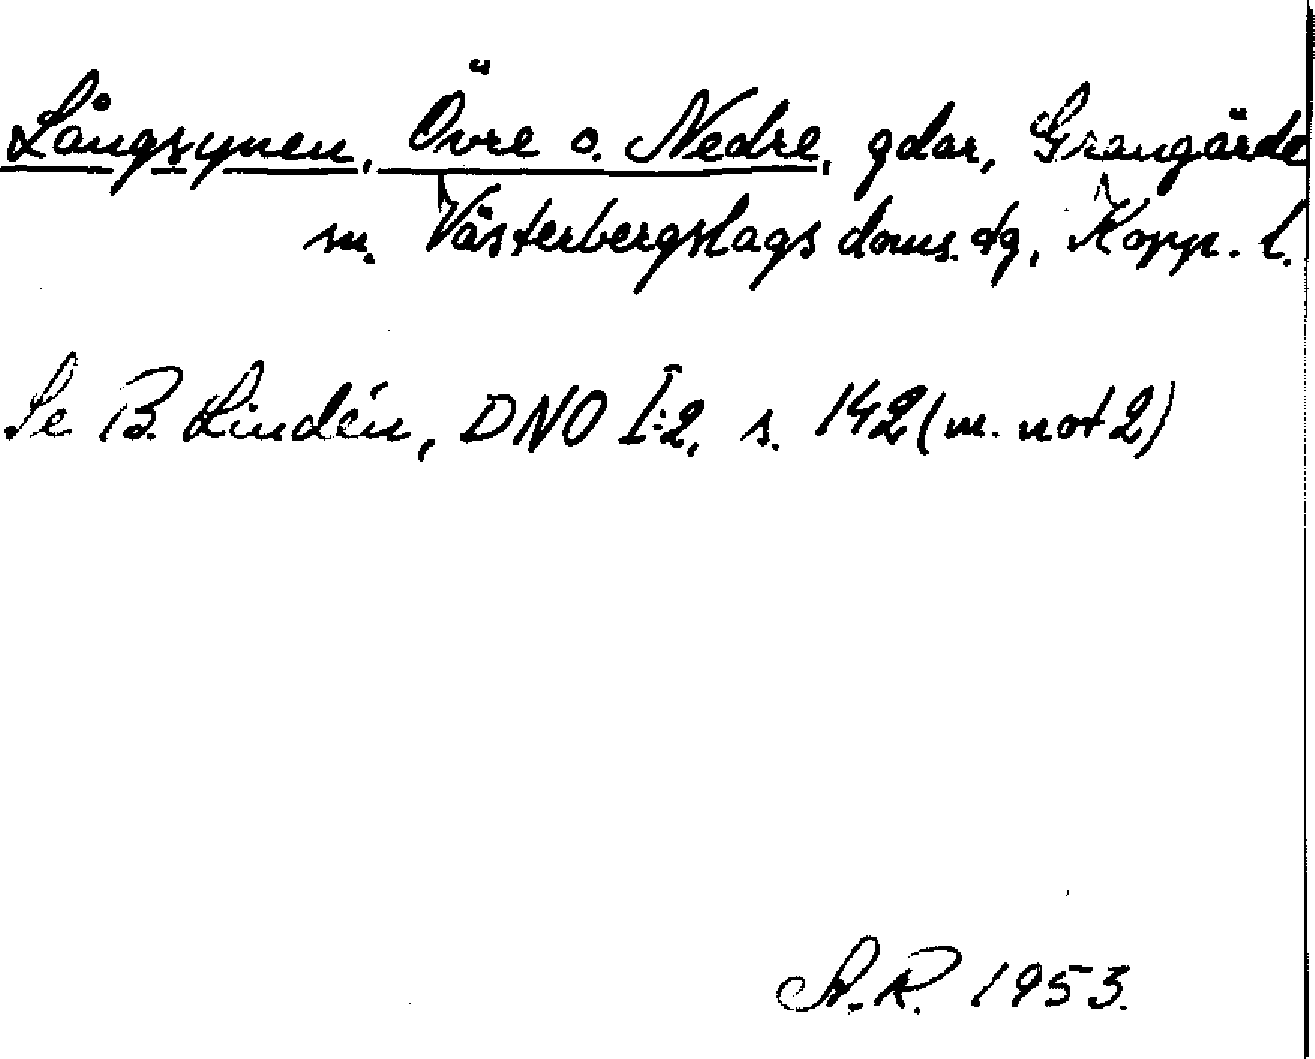 Långsynen, Övre o. Nedre, gdar, Grangärde
sn. Västerbergslags doms. tg, Kopp. l.
Se B. Lindén, DNO I:2, s. 142 (m. not 2)
A.R. 1953.